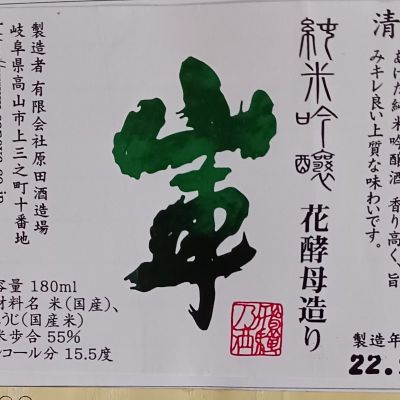 清
あげた純米吟醸酒 香り高く、旨
みキレ良い上質な味わいです。
製造年
22.
純米吟醸 花酵母造り
山車
飛騨乃酒
製造者 有限会社原田酒造場
岐阜県高山市上三之町十番地
容量 180ml
材料名 米(国産)、
うじ(国産米)
米歩合 55%
コール分 15.5度